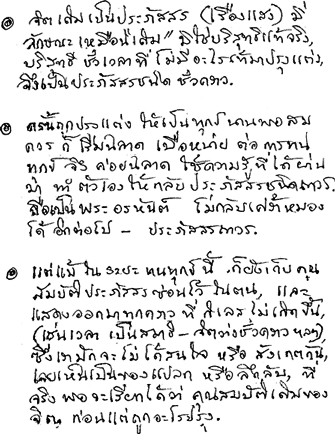 จิตเดิมเป็นประภัสสร (เรืองแสง) มี
ลักษณะ "เหมือนเดิม" มิใช่บริสุทธิ์แท้จริง,
บริสุทธิ์ ชั่วเวลาที่ ไม่มีอะไรเข้ามาปรุงแต่ง,
จึงเป็นประภัสสรชนิด ชั่วคราว.
ครั้นถูกปรุงแต่ง ให้เป็นทุกข์ นานพอสม
ควร ก็ เริ่มฉลาด เบื่อหน่าย ต่อ การทน
ทุกข์ จึง ค่อยฉลาด ใช้ความรู้ ที่ได้ผ่าน
มา ทำตัวเองให้กลับ ประภัสสรชนิดถาวร
คือเป็นพระอรหันต์ ไม่กลับเศร้าหมอง
ได้ อีกต่อไป – ประภัสสรถาวร.
แต่แม้ ในระยะ ทนทุกข์ นี้ ก็ยังเก็บ คุณ
สมบัติประภัสสรซ่อนไว้ ในตน, และ
แสดงออกมาทุกคราว ที่ กิเลส ไม่เกิดขึ้น,
(เช่นเวลา เป็นสมาธิ – จิตว่างชั่วคราว ฯลฯ)
ซึ่งเขามักจะไม่ได้สนใจ หรือ สังเกตกัน,
เลยเห็นเป็นของแปลก หรือลึกลับ, ที่
จริง พอจะเรียกได้ว่า คุณสมบัติเดิมของ
จิต ก่อนแต่ถูกอะไรปรุง.